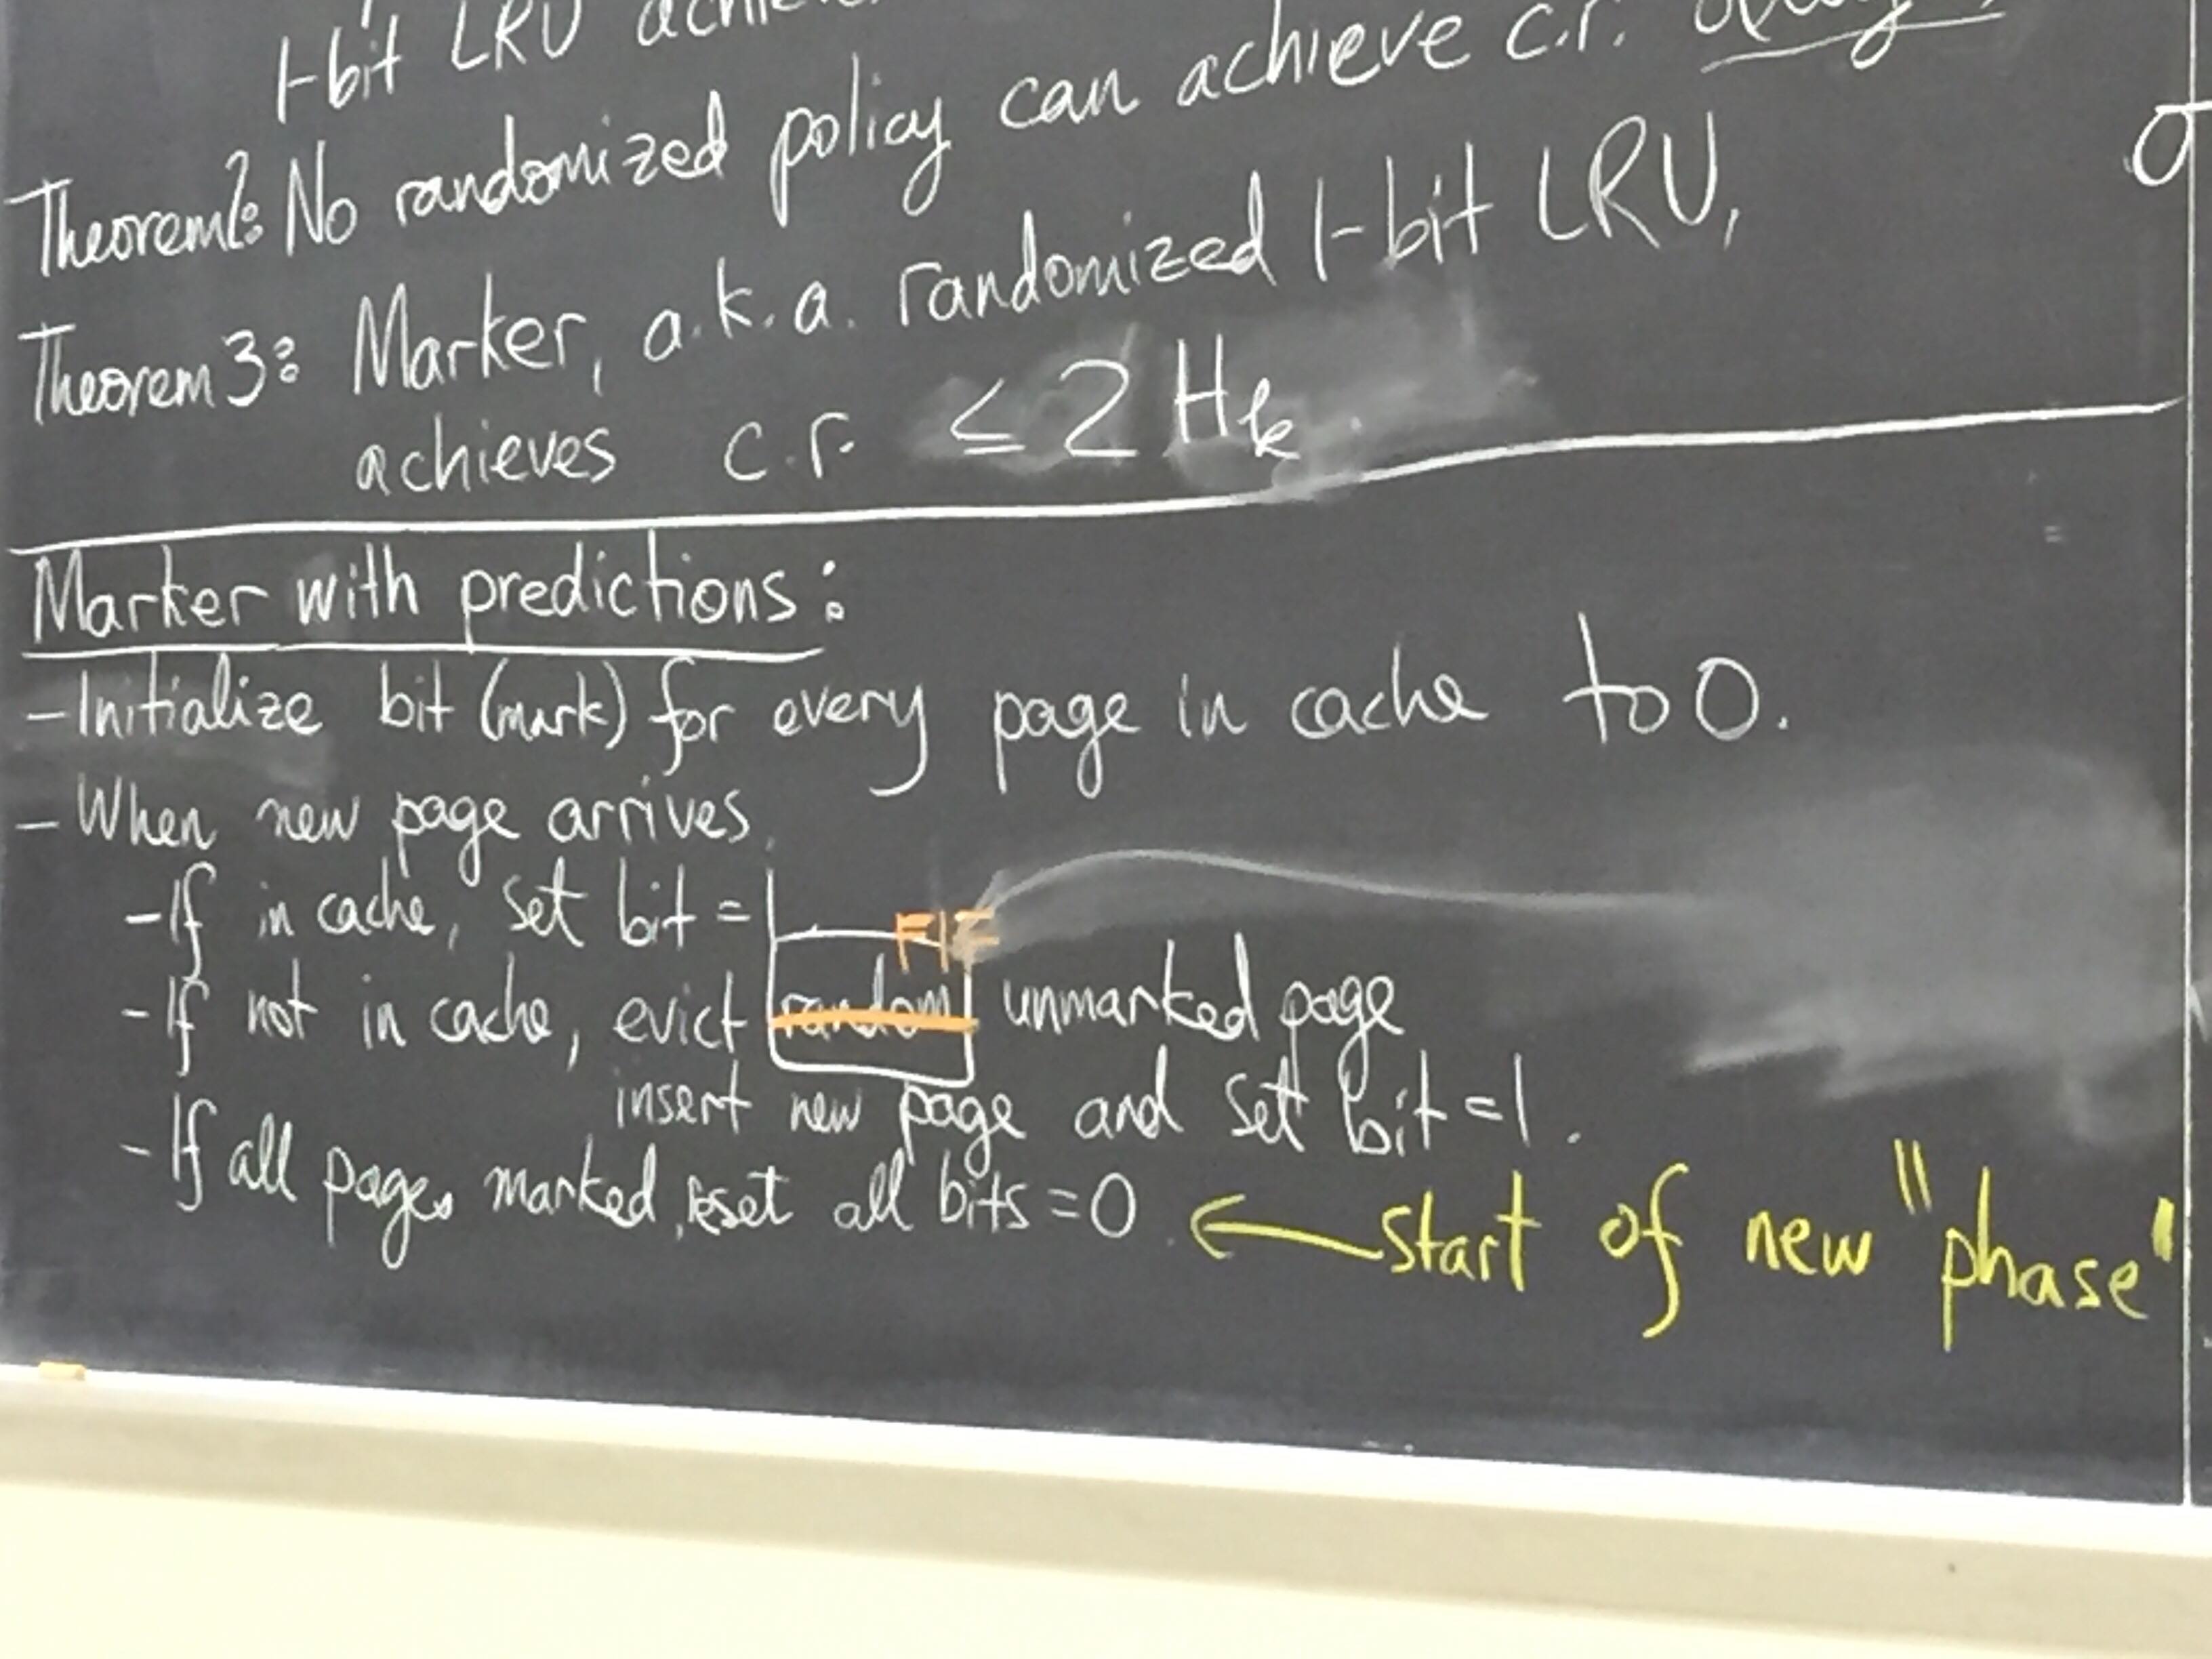 1-bit LRU
Theorem 2: No randomized policy can achieve c.r.
Theorem 3: Marker, a.k.a. randomized 1-bit LRU,
achieves c.r. ≤ 2 Hk
Marker with predictions:
- Initialize bit (mark) for every page in cache to 0.
- When new page arrives
- If in cache, set bit = 1
- If not in cache, evict random unmarked page
insert new page and set bit = 1.
- If all pages marked, reset all bits = 0. ← start of new "phase"